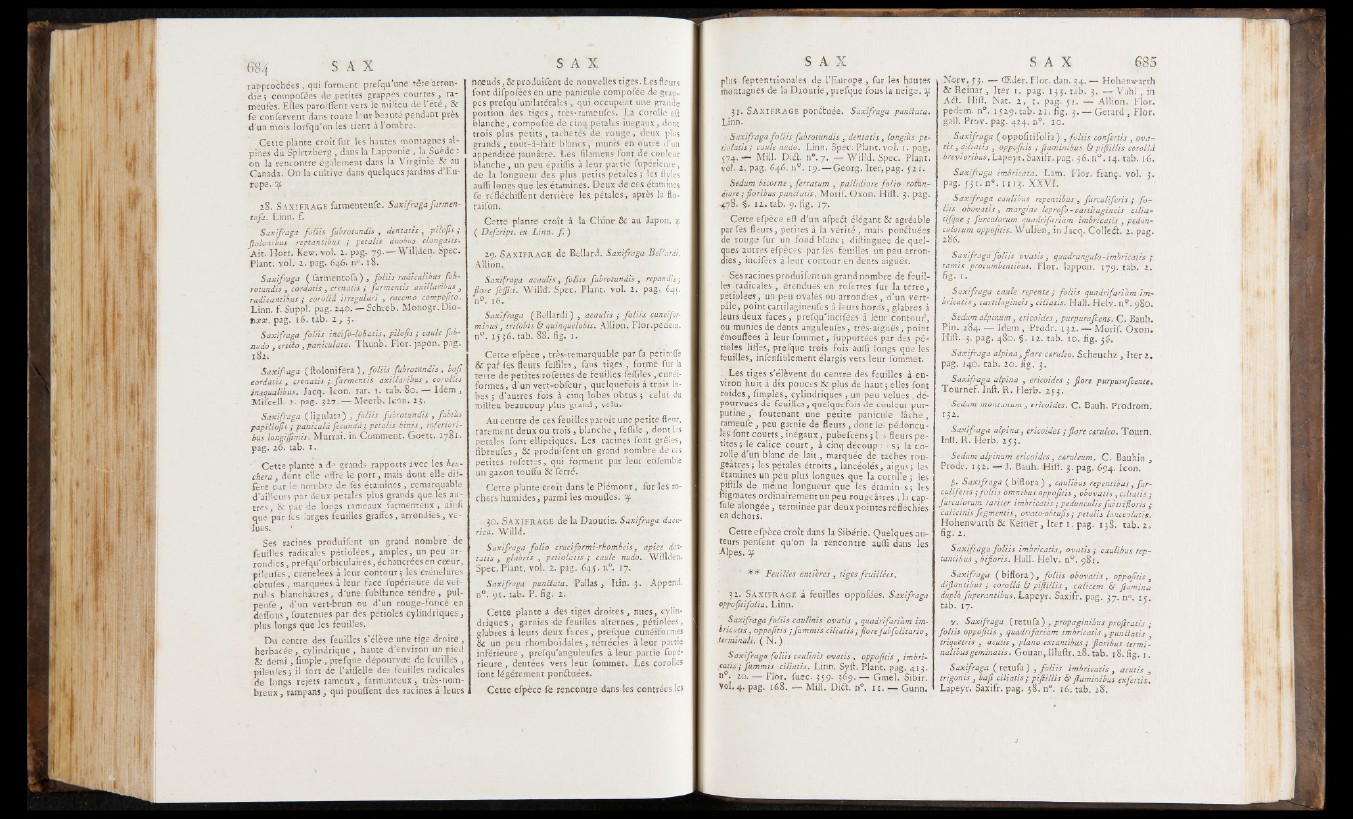 684 S A X
rapprochées, qui forment presqu'une tête arron-
die; composées de petites grappes courtes, ra-
meuses. Elles paroissent vers le milieu de l'été, &
se conservent dans toute leur beauté pendant près
d'un mois lorsqu'on les tient à l'ombre.
Cette plante croît sur les hautes montagnes al-
pines du Spitzberg, dans la Lapponie, la Suède:
on la rencontre également dans la Virginie & au
Canada. On la cultive dans quelques jardins d'Eu-
rope. ♃
28. SAXIFRAGE sarmenteuse. Saxifraga sarmen-
tosa. Linn. f.
Saxifraga foliis subrotundis, dentatis, pilosis;
stolonibus reptantibus; petalis duobus elongatis.
Ait. Hort. Kew. vol. 2. pag. 79. — Willden. Spec.
Plant. vol. 2. pag. 646. n°. 18.
Saxifraga (sarmentosa), foliis radicalibus sub-
rotundis, cordatis, crenatis; sarmentis axillaribus,
radicantibus; corollâ irregulari, racemo composito.
Linn. f. Suppl. pag. 240. — Schreb. Monogr. Dio-
nææ. pag. 16. tab. 2, 3.
Saxifraga foliis inciso-lobatis, pilosis; caule sub-
nudo, erecto, paniculato. Thunb. Flor. japon. pag.
182.
Saxifraga (stolonifera), foliis subrotundis, basi
cordatis, crenatis; sarmentis axillaribus, corollis
inequalibus. Jacq. Icon. rar. 1. tab. 80. — Idem,
Miscell. 2. pag. 327. — Meerb. Icon. 23.
Saxifraga (ligulata), foliis subrotundis, subtùs
papillosis; paniculâ secundâ; petalis binis, inferiori-
bus longissimis. Murrai. in Comment. Goett. 1781.
pag. 26. tab. 1.
Cette plante a de grands rapports avec les heu-
chera, dont elle offre le port, mais dont elle dif-
fère par le nombre de ses étamines, remarquable
d'ailleurs par deux pétales plus grands que les au-
tres, & par de longs rameaux sarmenteux, ainsi
que par ses larges feuilles grasses, arrondies, ve-
lues.
Ses racines produisent un grand nombre de
feuilles radicales pétiolées, amples, un peu ar-
rondies, presqu'orbiculaires, échancrées en cœur,
pileuses, crénelées à leur contour; les crénelures
obtuses, marquées à leur face supérieure de vei-
nules blanchâtres, d'une substance tendre, pul-
peuse, d'un vert-brun ou d'un rouge-foncé en
dessous, soutenues par des pétioles cylindriques,
plus longs que les feuilles.
Du centre des feuilles s'élève une tige droite,
herbacée, cylindrique, haute d'environ un pied
& demi, simple, presque dépourvue de feuilles,
pileuses; il sort de l'aisselle des feuilles radicales
de longs rejets rameux, sarmenteux, très-nom-
breux, rampans, qui poussent des racines à leurs
S A X
nœuds, & produisent de nouvelles tiges. Les fleurs
sont disposées en une panicule composée de grap-
pes presqu'unilatérales, qui occupent une grande
portion des tiges, très-rameuses. La corolle est
blanche, composée de cinq pétales inégaux, dont
trois plus petits, tachetés de rouge, deux plus
grands, tout-à-fait blancs, munis en outre d'un
appendice jaunâtre. Les filamens sont de couleur
blanche, un peu épaissis à leur partie supérieure,
de la longueur des plus petits pétales; les styles
aussi longs que les étamines. Deux de ces étamines
se réfléchissent derrière les pétales, après la flo-
raison.
Cette plante croît à la Chine & au Japon. ♃
(Descript. ex Linn. f.)
29. SAXIFRAGE de Bellard. Saxifraga Bellardi.
Allion.
Saxifraga acaulis, foliis subrotundis, repandis;
flore sessili. Willd. Spec. Plant. vol. 2. pag. 645.
n°. 16.
Saxifraga (Bellardi), acaulis; foliis cuneifor-
mibus, trilobis & quinquelobis. Allion. Flor. pedem.
n°. 1536. tab. 88. fig. 1.
Cette espèce, très-remarquable par sa petitesse
& par ses fleurs sessiles, sans tiges, forme sur la
terre de petites rosettes de feuilles sessiles, cunéi-
formes, d'un vert-obscur, quelquefois à trois lo-
bes; d'autres fois à cinq lobes obtus; celui du
milieu beaucoup plus grand, velu.
Au centre de ces feuilles paroît une petite fleur,
rarement deux ou trois, blanche, sessile, dont les
pétales sont elliptiques. Les racines sont grêles,
fibreuses, & produisent un grand nombre de ces
petites rosettes, qui forment par leur ensemble
un gazon touffu & serré.
Cette plante croît dans le Piémont, sur les ro-
chers humides, parmi les mousses. ♃
30. SAXIFRAGE de la Daourie. Saxifraga daou-
rica. Willd.
Saxifraga folio cruciformi-rhombeis, apice den-
tatis, glabris, petiolatis; caule nudo. Willden.
Spec. Plant. vol. 2. pag. 645. n°. 17.
Saxifraga punctata. Pallas, Itin. 3. Append.
n°. 91. tab. P. fig. 2.
Cette plante a des tiges droites, nues, cylin-
driques, garnies de feuilles alternes, pétiolées,
glabres à leurs deux faces, presque cunéiformes
& un peu rhomboïdales, rétrécies à leur partie
inférieure, presqu'anguleuses à leur partie supé-
rieure, dentées vers leur sommet. Les corolles
sont légèrement ponctuées.
Cette espèce se rencontre dans les contrées les
S A X
plus septentrionales de l'Europe, sur les hautes
montagnes de la Daourie, presque sous la neige. ♃
31. SAXIFRAGE ponctuée. Saxifraga punctata.
Linn.
Saxifraga foliis subrotundis, dentatis, longiùs pe-
tiolatis; caule nudo. Linn. Spec. Plant. vol. 1. pag.
574. — Mill. Dict. n°. 7. — Willd. Spec. Plant.
vol. 2. pag. 646. n°. 19. — Georg. Iter, pag. 521.
Sedum bicorne, serratum, pallidiore folio rotun-
diore; floribus punctatis. Moris. Oxon. Hist. 3. pag.
478. §. 12. tab. 9. fig. 17.
Cette espèce est d'un aspect élégant & agréable
par ses fleurs, petites à la vérité, mais ponctuées
de rouge sur un fond blanc; distinguée de quel-
ques autres espèces par ses feuilles un peu arron-
dies, incisées à leur contour en dents aiguës.
Ses racines produisent un grand nombre de feuil-
les radicales, étendues en rosettes sur la terre,
pétiolées, un peu ovales ou arrondies, d'un vert-
pâle, point cartilagineuses à leurs bords, glabres à
leurs deux faces, presqu'incisées à leur contour,
ou munies de dents anguleuses, très-aiguës, point
émoussées à leur sommet, supportées par des pé-
tioles lisses, presque trois fois aussi longs que les
feuilles, insensiblement élargis vers leur sommet.
Les tiges s'élèvent du centre des feuilles à en-
viron huit à dix pouces & plus de haut; elles sont
roides, simples, cylindriques, un peu velues, dé-
pourvues de feuilles, quelquefois de couleur pur-
purine, soutenant une petite panicule lâche,
rameuse, peu garnie de fleurs, dont les pédoncu-
les sont courts, inégaux, pubescens; les fleurs pe-
tites; le calice court, à cinq découpures; la co-
rolle d'un blanc de lait, marquée de taches rou-
geâtres; les pétales étroits, lancéolés, aigus; les
étamines un peu plus longues que la corolle; les
pistils de même longueur que les étamines; les
stigmates ordinairement un peu rougeâtres; la cap-
sule alongée, terminée par deux pointes réfléchies
en dehors.
Cette espèce croît dans la Sibérie. Quelques au-
teurs pensent qu'on la rencontre aussi dans les
Alpes. ♃
** Feuilles entières, tiges feuillées.
32. SAXIFRAGE à feuilles opposées. Saxifraga
oppositifolia. Linn.
Saxifraga foliis caulinis ovatis, quadrifariàm im-
bricatis, oppositis; summis ciliatis; flore subsolitario,
terminali. (N.)
Saxifraga foliis caulinis ovatis, oppositis, imbri-
catis; summis ciliatis. Linn. Syst. Plant. pag. 413.
n°. 20. — Flor. suec. 359. 369. — Gmel. Sibir.
vol. 4. pag. 168. — Mill. Dict. n°. 11. — Gunn.
S A X 685
Norv. 53. — Œder. Flor. dan. 34. — Hohenwarth
& Reinar, Iter 1. pag. 133. tab. 3. — Vahl, in
Act. Hist. Nat. 2, 1. pag. 51. — Allion. Flor.
pedem. n°. 1529. tab. 21. fig. 3. — Gerard, Flor.
gall. Prov. pag. 424. n°. 10.
Saxifraga (oppositifolia), foliis confertis, ova-
tis, ciliatis, oppositis; staminibus & pistillis corollâ
brevioribus. Lapeyr. Saxifr. pag. 36. n°. 14. tab. 16.
Saxifraga imbricata. Lam. Flor. franç. vol. 3.
pag. 531. n°. 1113. XXVI.
Saxifraga caulibus repentibus, surculiferis; fo-
liis obovatis, margine leproso-cartilagineis cilia-
tisque; surculorum quadrifariàm imbricatis, pedun-
culorum oppositis. Wulfen, in Jacq. Collect. 2. pag.
286.
Saxifraga foliis ovatis, quadrangulo-imbricatis;
ramis procumbentibus. Flor. lappon. 179. tab. 2.
fig. 1.
Saxifraga caule repente; foliis quadrifariàm im-
bricatis, cartilagineis, ciliatis. Hall. Helv. n°. 980.
Sedum alpinum, ericoides, purpurascens. C. Bauh.
Pin. 284. — Idem, Prodr. 132. — Moris. Oxon.
Hist. 3. pag. 480. §. 12. tab. 10. fig. 36.
Saxifraga alpina, flore cæruleo. Scheuchz, Iter 2.
pag. 140. tab. 20. fig. 3.
Saxifraga alpina, ericoides; flore purpurascente.
Tournef. Inst. R. Herb. 253.
Sedum montanum, ericoides. C. Bauh. Prodrom.
132.
Saxifraga alpina, ericoides; flore cæruleo. Tourn.
Inst. R. Herb. 253.
Sedum alpinum ericoides, cæruleum. C. Bauhin,
Prodr. 132. — J. Bauh. Hist. 3. pag. 694. Icon.
β. Saxifraga (biflora), caulibus repentibus, sur-
culiferis; foliis omnibus oppositis, obovatis, ciliatis;
surculorum rariter imbricatis; pedunculis subtrifloris;
calicinis segmentis, ovato-obtusis; petalis lanceolatis.
Hohenwarth & Reiner, Iter 1. pag. 138. tab. 2.
fig. 2.
Saxifraga foliis imbricatis, ovatis; caulibus rep-
tantibus, bifloris. Hall. Helv. n°. 981.
Saxifraga (biflora), foliis obovatis, oppositis,
distantibus; corollâ & pistillis, calicem & stamina
duplò superantibus. Lapeyr. Saxifr. pag. 37. n°. 15.
tab. 17.
γ. Saxifraga (retusa), propaginibus prostratis;
foliis oppositis, quadrifariàm imbricatis, punctatis,
triquetris, acutis, plano exstantibus; floribus termi-
nalibus geminatis. Gouan, Illustr. 28. tab. 18. fig. 1.
Saxifraga (retusa), foliis imbricatis, acutis,
trigonis, basi ciliatis; pistillis & staminibus exsertis.
Lapeyr. Saxifr. pag. 38. n°. 16. tab. 18.